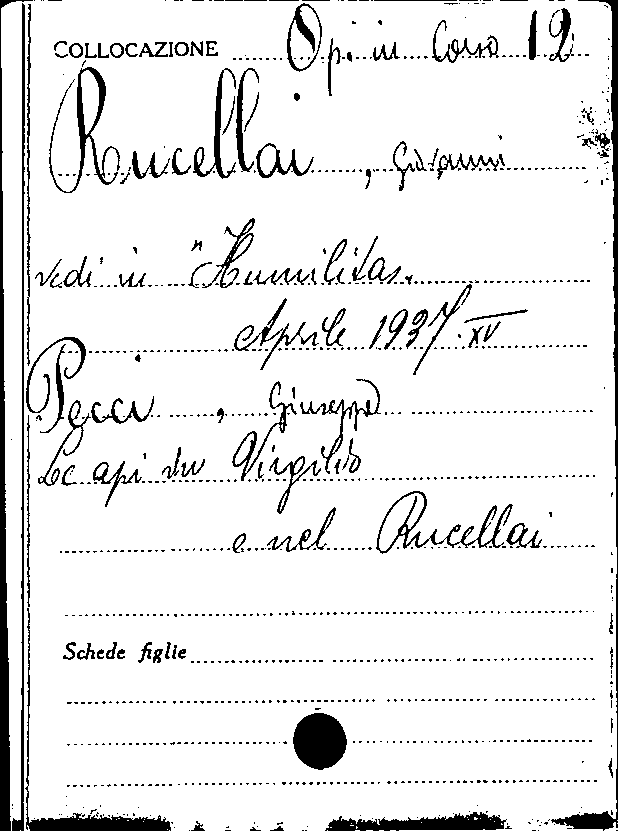 COLLOCAZIONE Op. in Corso 12
Rucellai, Giovanni
vedi in "Humilitas.
Aprile 1937. XV
Pecci, Giuseppe
Le api in Virgilio
e nel Rucellai
Schede figlie